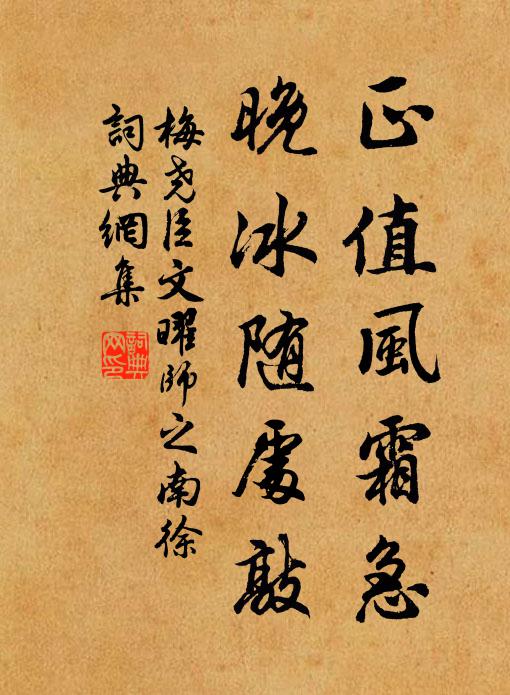 正值風霜急
晚冰随處敲
梅堯臣文曜師之南徐
詞典網集
詞典網印